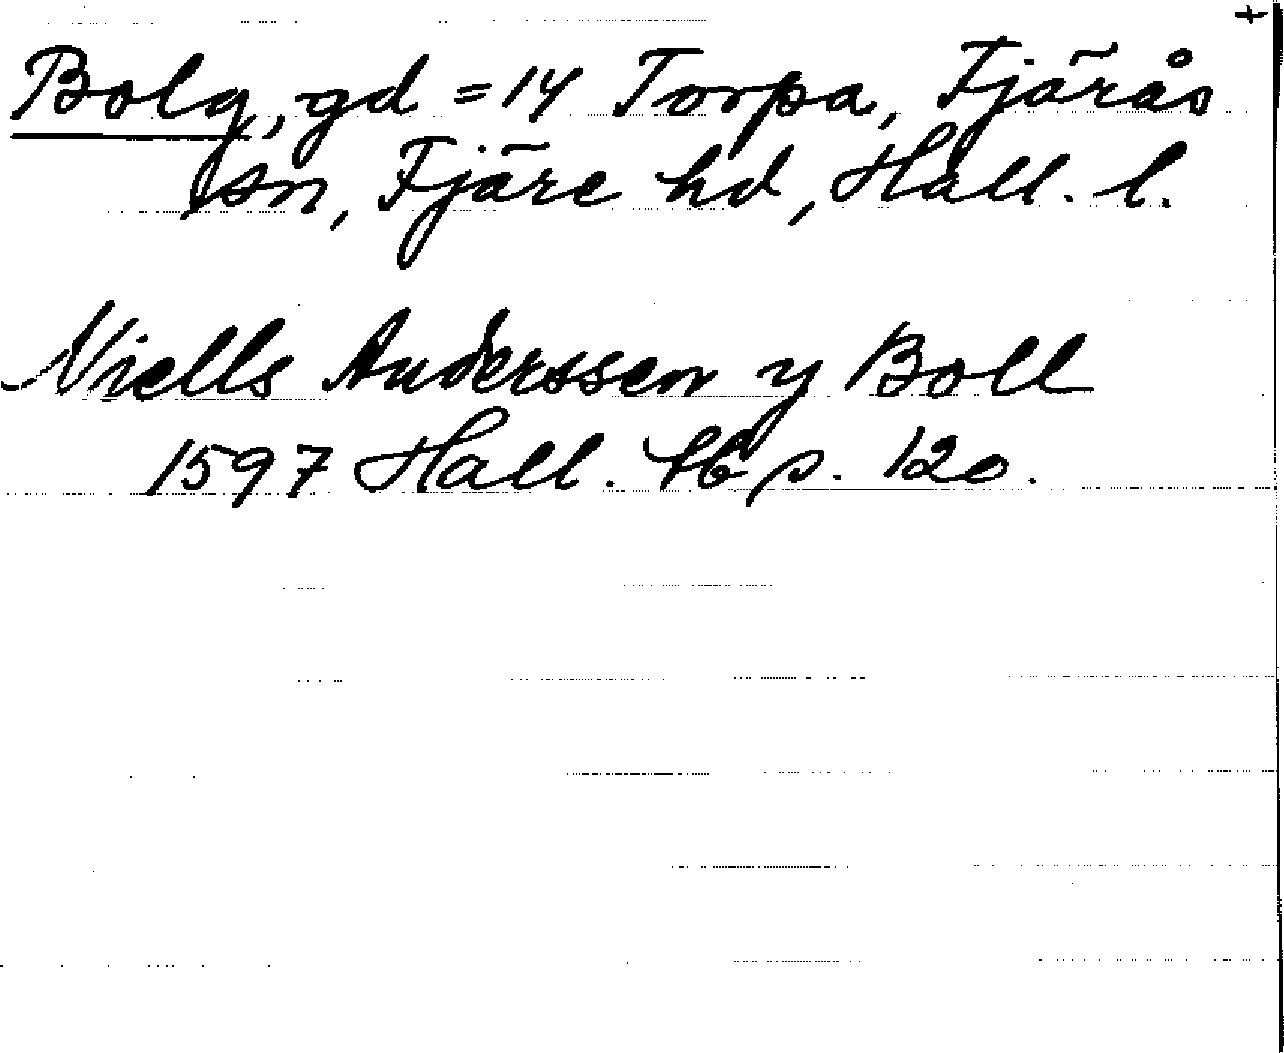 +
Bolg, gd = 14 Torpa, Fjärås
sn, Fjäre hd, Hall. l.
Niells Anderssen y Boll
1597 Hall. lb p. 120.